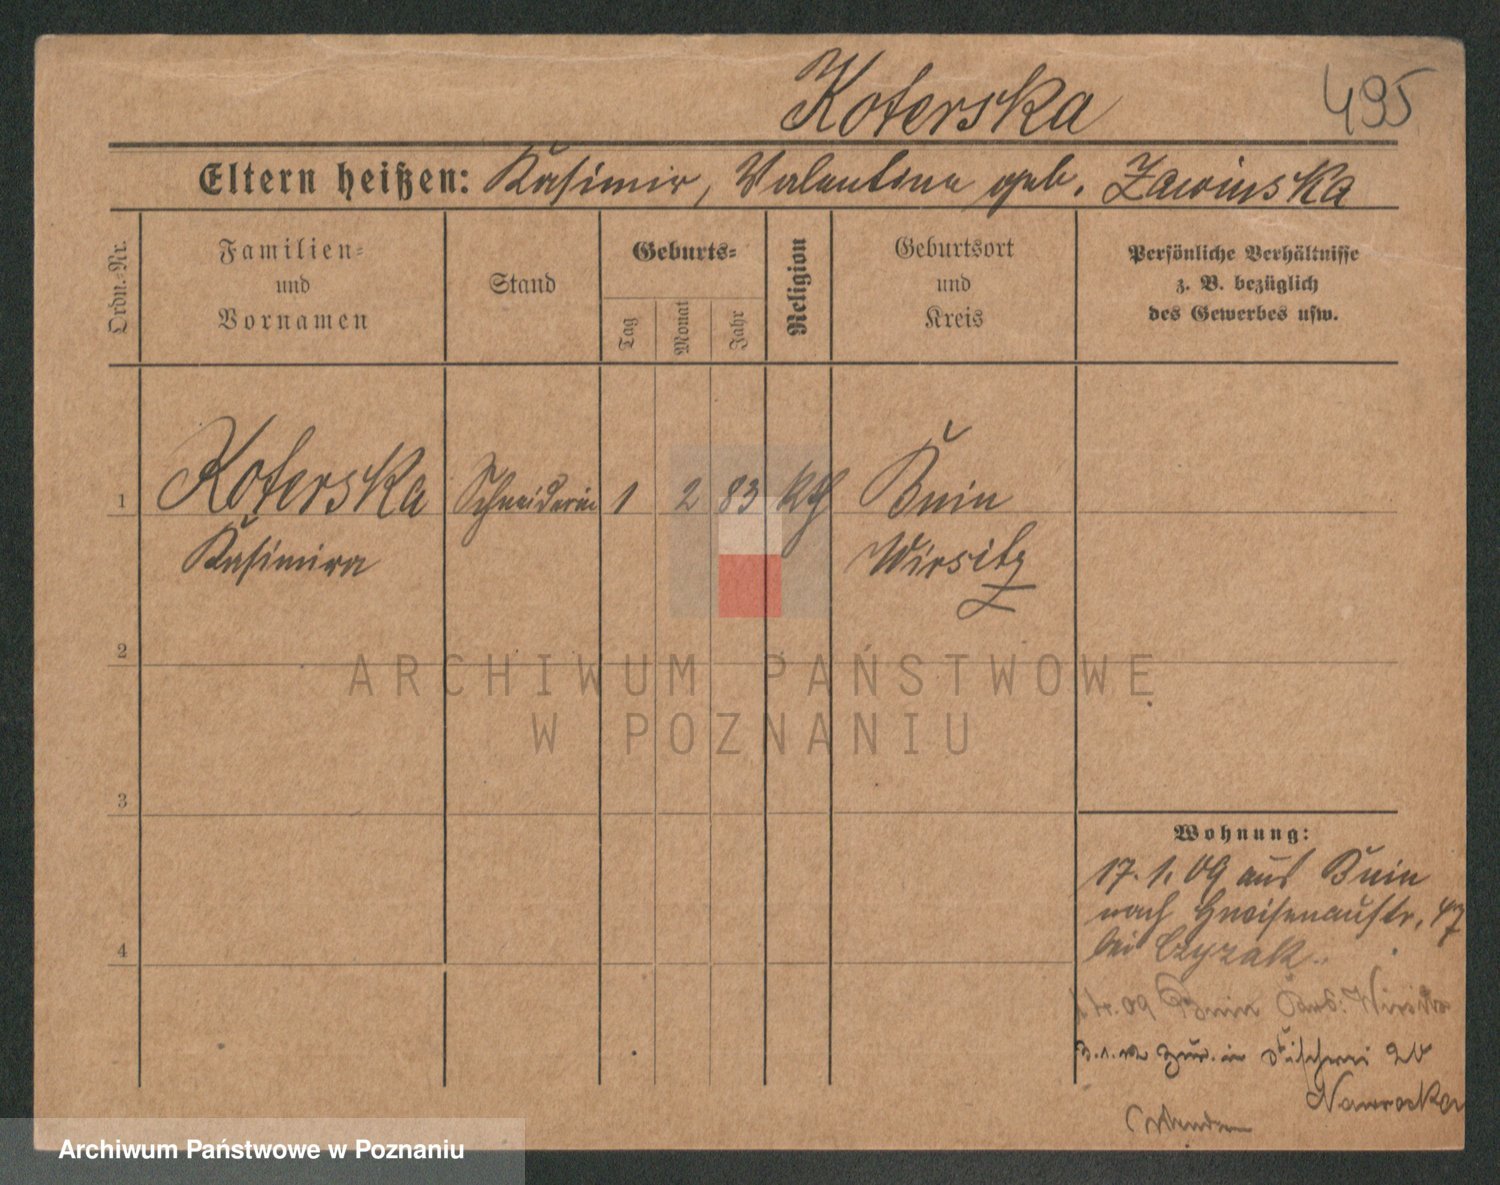 Koterska 495
Eltern heißen: Kasimir, Valentina geb. Zawinska
Ordn.-Nr.
Familien-
und
Vornamen
Stand
Geburts-
Tag
Monat
Jahr
Religion
Geburtsort
und
Kreis
Persönliche Verhältnisse
z. B. bezüglich
des Gewerbes usw.
1 Koterska Schneiderin 1 2 83 kth Bnin
Kasimira Wirsitz
2
3
4
Wohnung:
17. 1. 09 aus Bnin
nach Gneisenaustr. 47
bei Czyzak.
09 Bnin
zur. in Fischerei 20
Nawrocka
Wenden
ARCHIWUM PAŃSTWOWE
W POZNANIU
Archiwum Państwowe w Poznaniu